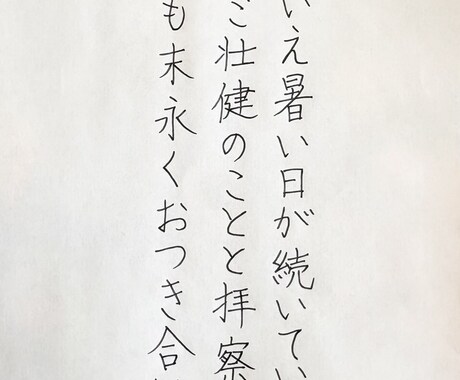 いえ暑い日が続いてい
ご壮健のことと拝察
も末永くおつき合